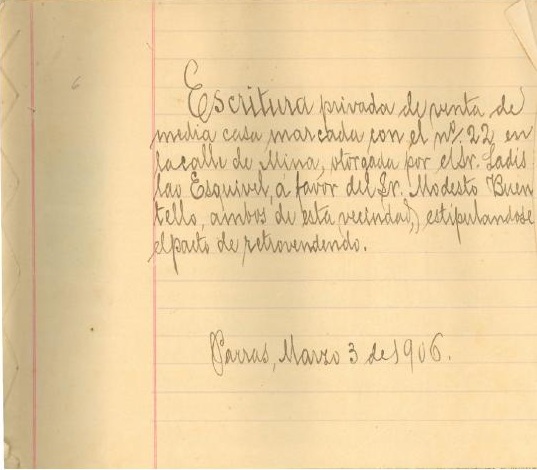 Escritura privada de venta de
media casa marcada con el nº. 22 en
la calle de Mina, otorgada por el Sr. Ladis
lao Esquivel, a favor del Sr. Modesto Buen
tello, ambos de esta vecindad, estipulandose
el pacto de retrovendendo.
Parras, Marzo 3 de 1906.